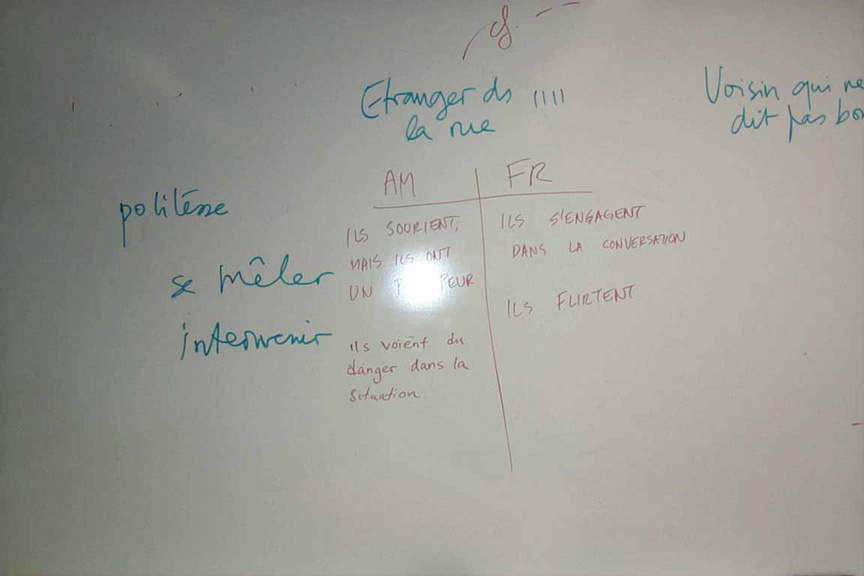 cf.
Etranger ds
la rue
Voisin qui ne
dit pas
AM
FR
politesse
se mêler
intervenir
ILS SOURIENT,
MAIS ILS ONT
UN PEUR
ils voient du
danger dans la
situation
ILS S'ENGAGENT
DANS LA CONVERSATION
ILS FLIRTENT